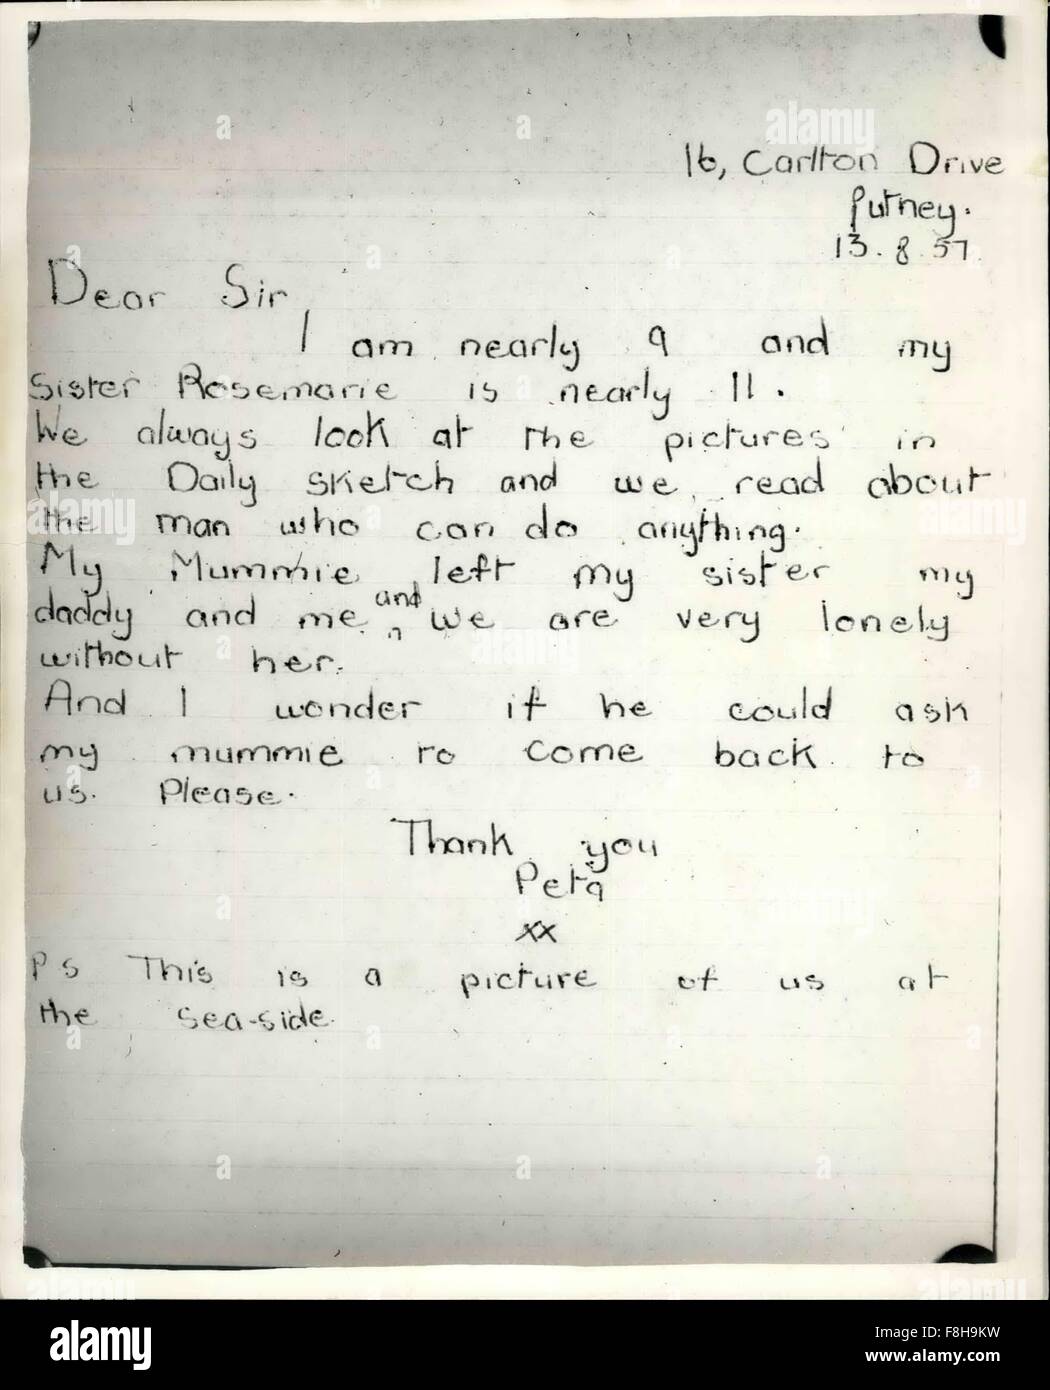 16, Carlton Drive
Putney.
13. 8. 57.
Dear Sir,
I am nearly 9 and my
Sister Rosemarie is nearly 11.
We always look at the pictures in
the Daily sketch and we read about
the man who can do anything.
My Mummie left my sister my
daddy and me and we are very lonely
without her.
And I wonder if he could ask
my mummie to come back to
us. Please.
Thank you
Peta
xx
PS This is a picture of us at
the sea-side.
alamy
Image ID: F8H9KW
www.alamy.com